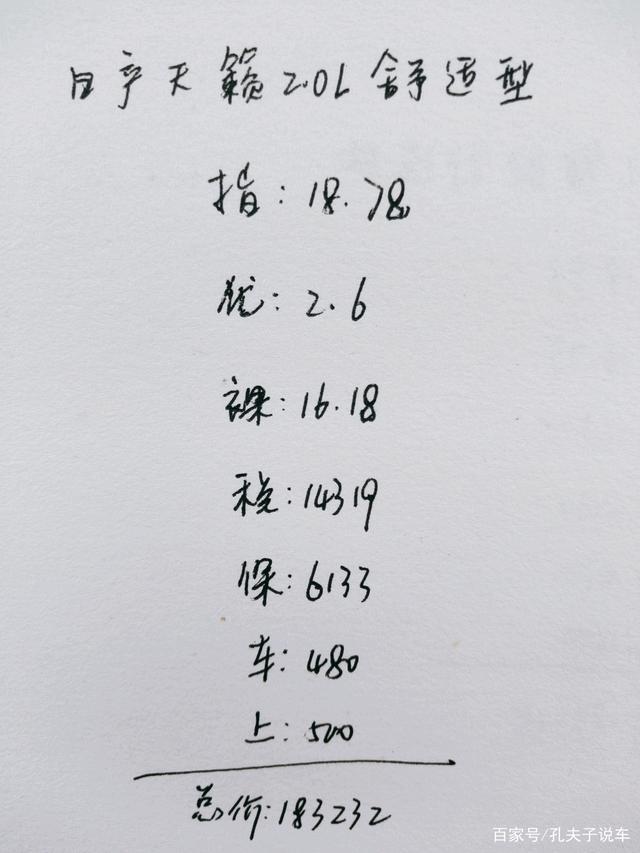 日产天籁2.0L舒适型
指:18.78
优:2.6
裸:16.18
税:14319
保:6133
车:480
上:500
总价:183232
百家号/孔夫子说车